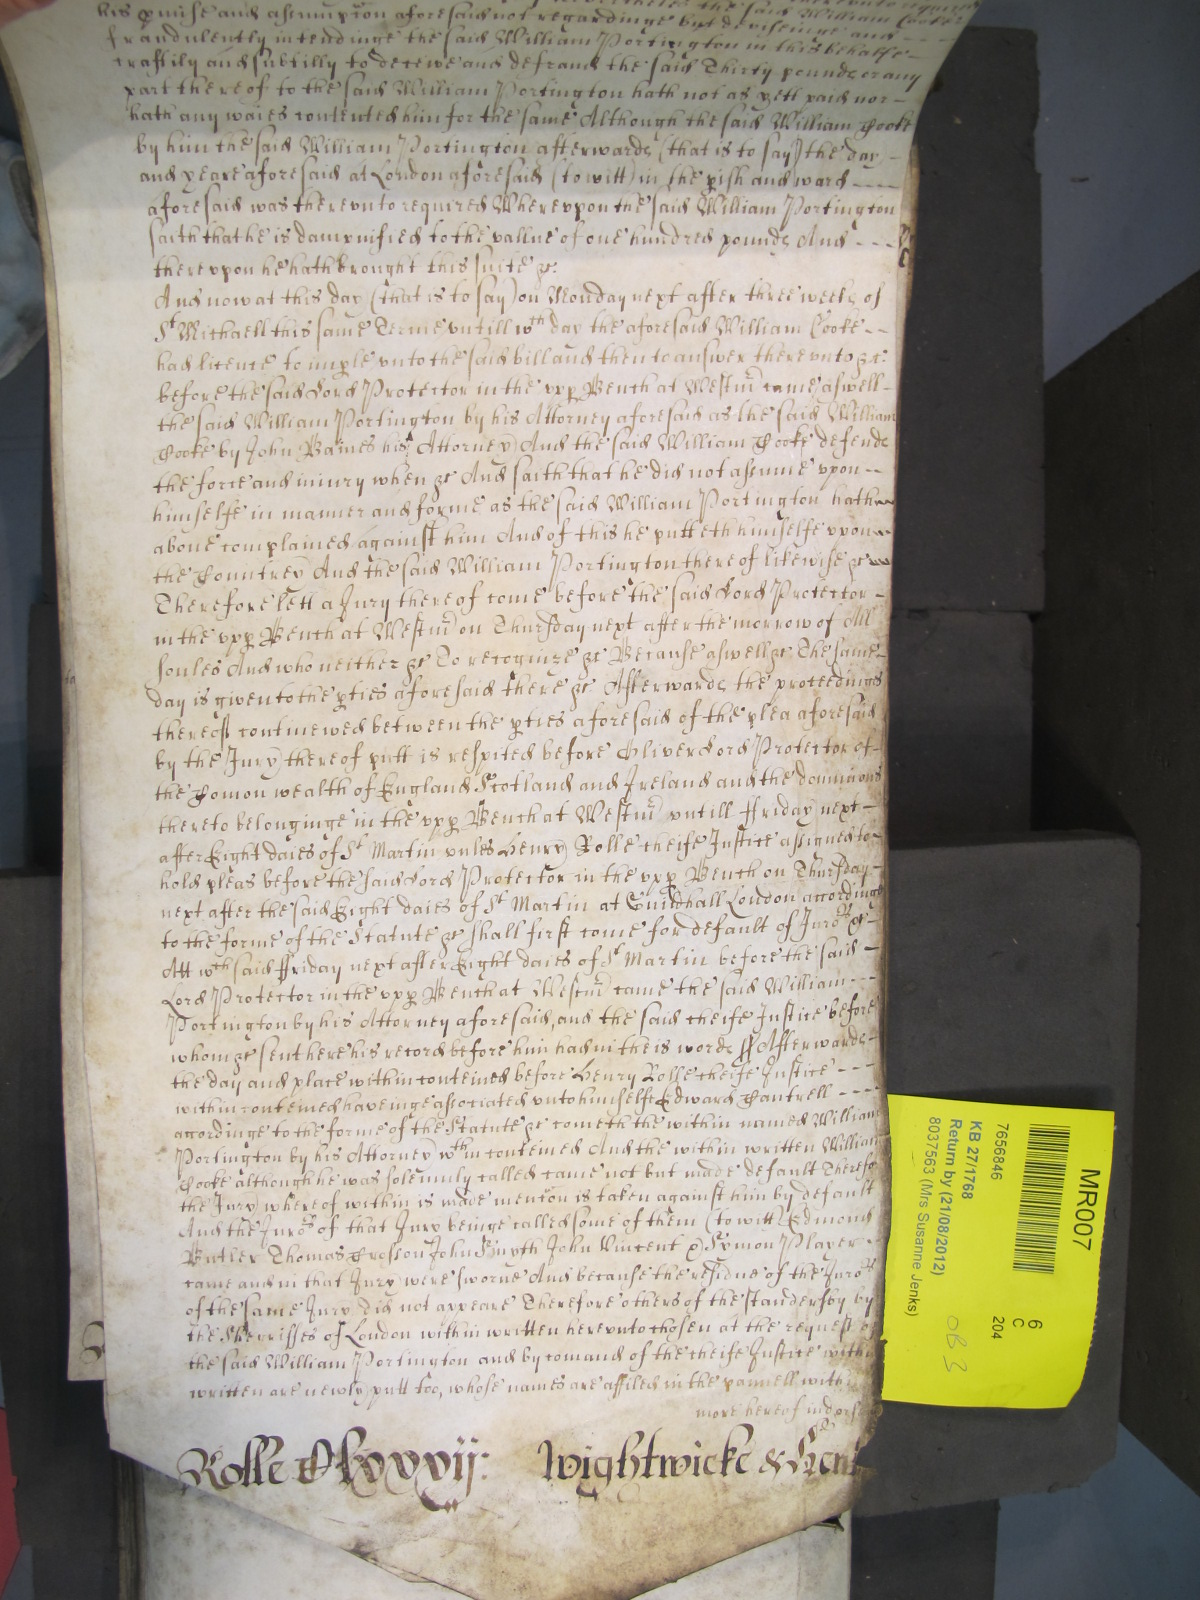 his pmise and assumption aforesaid not regardinge but devisinge and
fraudulently intendinge the said William Portington in this behalfe
craftily and subtilly to deceive and defraud the said Thirty pounds or any
part thereof to the said William Portington hath not as yett paid nor
hath any waies contented him for the same Although the said William Cooke
by him the said William Portington afterwards (that is to say) the day
and yeare aforesaid at London aforesaid (to witt) in the pish and ward
aforesaid was therevnto required Wherevpon the said William Portington
saith that he is dampnified to the vallue of one hundred pounds And
therevpon he hath brought this suite &c.
And now at this day (that is to say) on Monday next after three weeks of
St Michaell this same Terme vntill wth day the aforesaid William Cooke
had licence to imple vnto the said bill and then to answer therevnto &c.
before the said Lord Protector in the vpp Bench at Westm came aswell
the said William Portington by his Attorney aforesaid as the said William
Cooke by John Baines his Attorney And the said William Cooke defends
the force and iniury when &c And saith that he did not assume vpon
himselfe in manner and forme as the said William Portington hath
aboue complained against him And of this he putteth himselfe vpon
the Countrey And the said William Portington thereof likewise &c
Therefore lett a Jury thereof come before the said Lord Protector
in the vpp Bench at Westm on Thursday next after the morrow of All
soules And who neither &c To recognize &c Because aswell &c The same
day is given to the pties aforesaid there &c Afterwards the proceedings
thereof continewed betweene the pties aforesaid of the plea aforesaid
by the Jury thereof putt is respited before Oliver Lord Protector of
the Comon wealth of England Scotland and Ireland and the dominions
thereto belonginge in the vpp Bench at Westm vntill ffriday next
after Eight daies of St Martin vnles Henry Rolle cheife Justice assigned to
hold pleas before the said Lord Protector in the vpp Bench on Thursday
next after the said Eight daies of St Martin at Guildhall London accordinge
to the forme of the Statute &c shall first come for default of Juro's &c
Att wch said ffriday next after Eight daies of St Martin before the said
Lord Protector in the vpp Bench at Westm came the said William
Portington by his Attorney aforesaid, and the said cheife Justice before
whom &c sent here his record before him had in theis words ss Afterwards
the day and place within conteined before Henry Rolle cheife Justice
within conteined haveinge associated vnto himselfe Edward Cantrell
accordinge to the forme of the Statute &c cometh the within named William
Portington by his Attorney wthin conteined And the within written William
Cooke although he was solemnly called came not but made default Therefo
the Jury whereof within is made menton is taken against him by default
And the Juro's of that Jury beinge called some of them (to witt) Edmond
Butler Thomas Crosson John Smyth John Vincent & Symon Player
came and in that Jury were sworne And because the residue of the Juro's
of the same Jury did not appeare Therefore others of the standersby by
the Sherriffes of London within written herevnto chosen at the request of
the said William Portington and by comand of the cheife Justice within
written are newly putt too, whose names are affiled in the pannell within
more hereof indorsed
Rolle Clxxxij: Wightwicke &
MR007
7656846
6
C
204
KB 27/1768
Return by (21/08/2012)
8037563 (Mrs Susanne Jenks)
OB 3